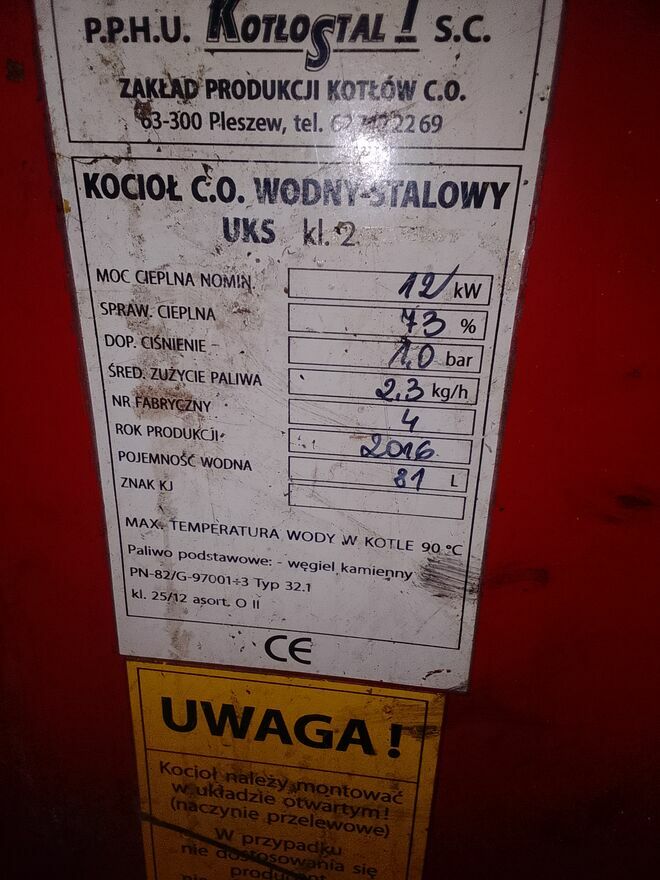 P.P.H.U. KOTŁOSTAL ! S.C.
ZAKŁAD PRODUKCJI KOTŁÓW C.O.
63-300 Pleszew, tel. 2269
KOCIOŁ C.O. WODNY-STALOWY
UKS kl. 2
MOC CIEPLNA NOMIN. 12 kW
SPRAW. CIEPLNA 73 %
DOP. CIŚNIENIE 1,0 bar
ŚRED. ZUŻYCIE PALIWA 2,3 kg/h
NR FABRYCZNY 4
ROK PRODUKCJI 2016
POJEMNOŚĆ WODNA 81 L
ZNAK KJ
MAX. TEMPERATURA WODY W KOTLE 90 °C
Paliwo podstawowe: - węgiel kamienny
PN-82/G-97001÷3 Typ 32.1
kl. 25/12 asort. O II
CE
UWAGA !
Kocioł należy montować
w układzie otwartym!
(naczynie przelewowe)
W przypadku
nie dostosowania się
producent